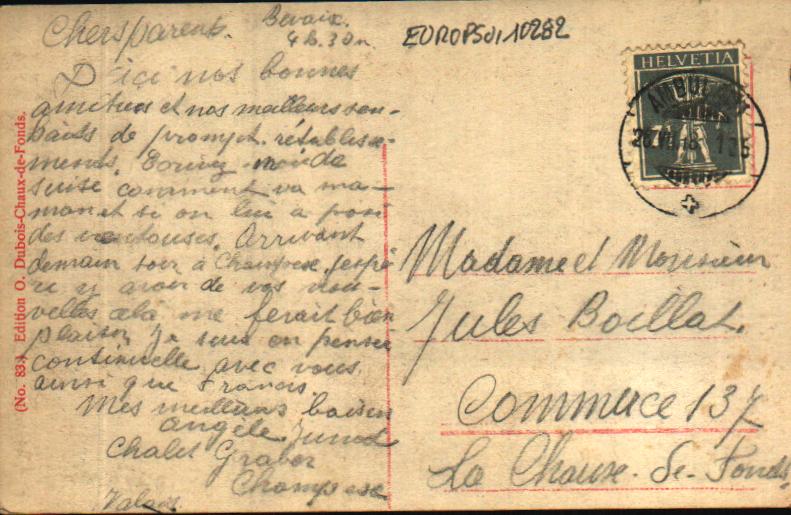 Bevaix.
4 h. 30 m.
Chers parents.
D'ici nos bonnes
amitiés et nos meilleurs sou-
haits de prompt rétablisse-
ments.
suite comment va ma-
man et si on lui a posé
des ventouses. Arrivant
demain soir à Champex, j'espè
re y avoir de vos nou-
velles cela me ferait bien
plaisir. Je suis en pensée
continuelle avec vous
ainsi que Francis.
Mes meilleurs baisers
Angèle Junod
Chalet Graber
Champex
Valais
(No. 83.) Edition O. Dubois-Chaux-de-Fonds.
EUROPSUI10282
HELVETIA
AMBULANT
26.VII.18
Madame et Monsieur
Jules Boillat.
Commerce 137
La Chaux-de-Fonds